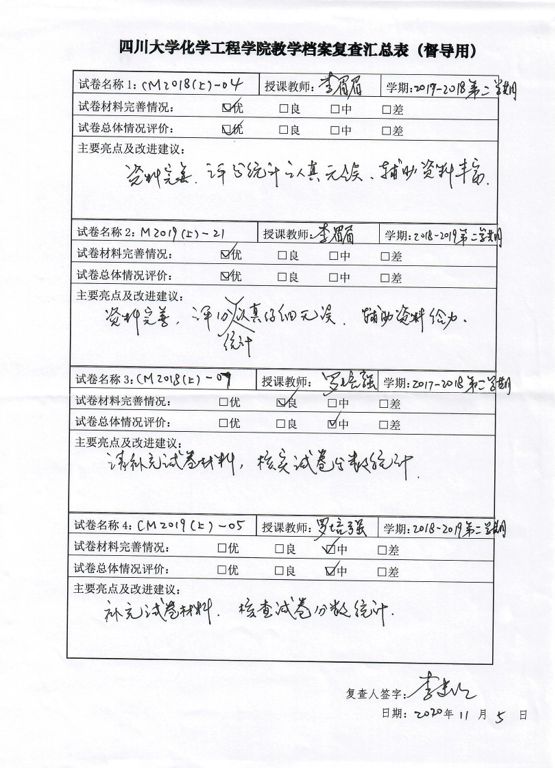 四川大学化学工程学院教学档案复查汇总表（督导用）
试卷名称1：CM2018(上)-04 授课教师：李眉眉 学期：2017-2018第二学期
试卷材料完善情况： ☑优 □良 □中 □差
试卷总体情况评价： ☑优 □良 □中 □差
主要亮点及改进建议：
资料完善、评分统计认真无误、辅助资料丰富.
试卷名称2：M2019(上)-21 授课教师：李眉眉 学期：2018-2019第二学期
试卷材料完善情况： ☑优 □良 □中 □差
试卷总体情况评价： ☑优 □良 □中 □差
主要亮点及改进建议：
资料完善、评分认真仔细无误、辅助资料给力.
统计
试卷名称3：CM2018(上)-09 授课教师：罗培强 学期：2017-2018第二学期
试卷材料完善情况： □优 ☑良 □中 □差
试卷总体情况评价： □优 □良 ☑中 □差
主要亮点及改进建议：
请补充试卷材料，核实试卷分数统计.
试卷名称4：CM2019(上)-05 授课教师：罗培强 学期：2018-2019第二学期
试卷材料完善情况： □优 □良 ☑中 □差
试卷总体情况评价： □优 □良 ☑中 □差
主要亮点及改进建议：
补充试卷材料、核查试卷分数统计.
复查人签字：李
日期：2020年11月5日